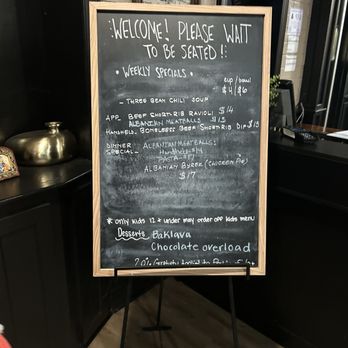 WELCOME! PLEASE WAIT
TO BE SEATED!
• WEEKLY SPECIALS •
cup / bowl
$4 / $6
- THREE BEAN CHILI SOUP
APP. BEEF SHORT RIB RAVIOLI $14
ALBANIAN MEATBALLS $13
HANDHELD. BONELESS BEEF SHORT RIB DIP $15
DINNER ALBANIAN MEATBALLS:
SPECIAL-
PASTA
ALBANIAN BYREK (CHICKEN PIE)
$17
* only kids 12 + under may order off kids menu
Desserts Baklava
Chocolate overload